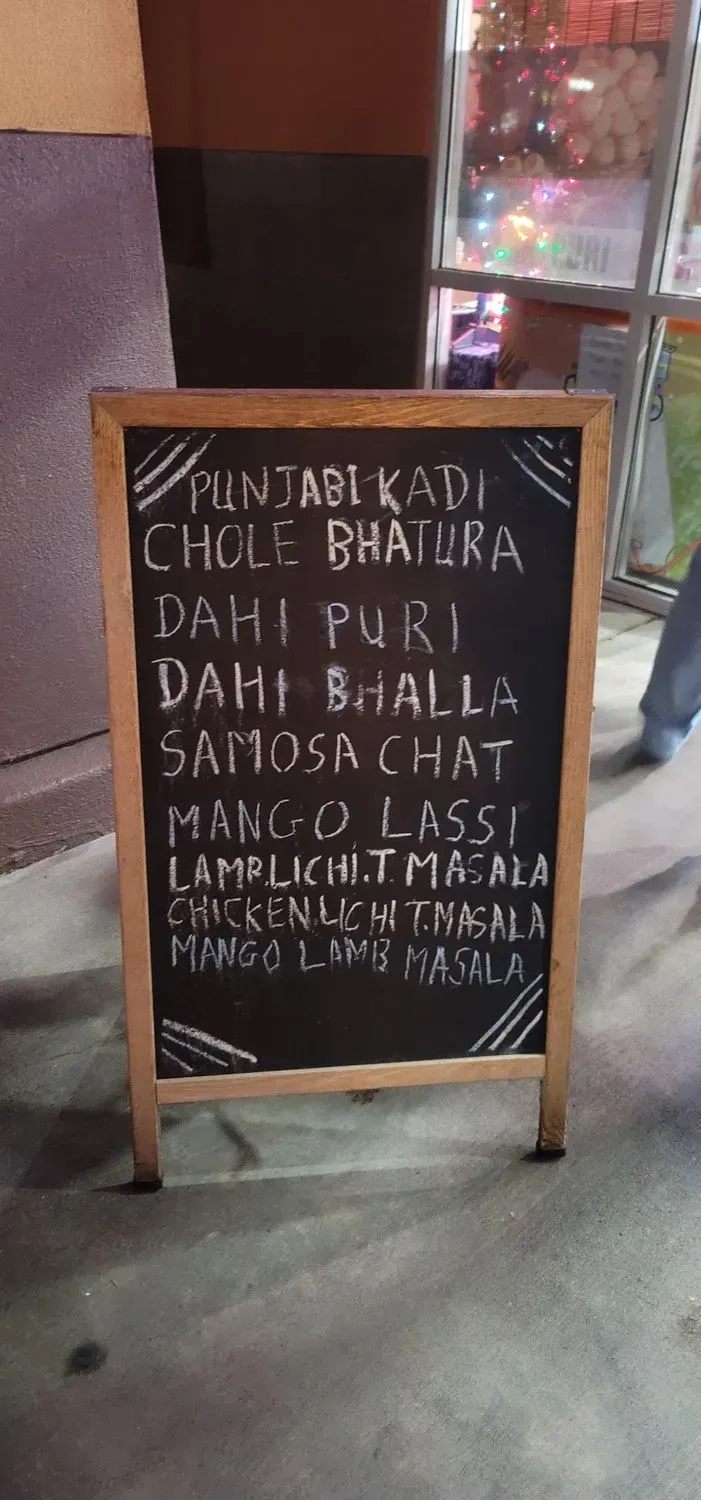 PUNJABI KADI
CHOLE BHATURA
DAHI PURI
DAHI BHALLA
SAMOSA CHAT
MANGO LASSI
LAMB.LICHI.T.MASALA
CHICKEN.LICHI T.MASALA
MANGO LAMB MASALA